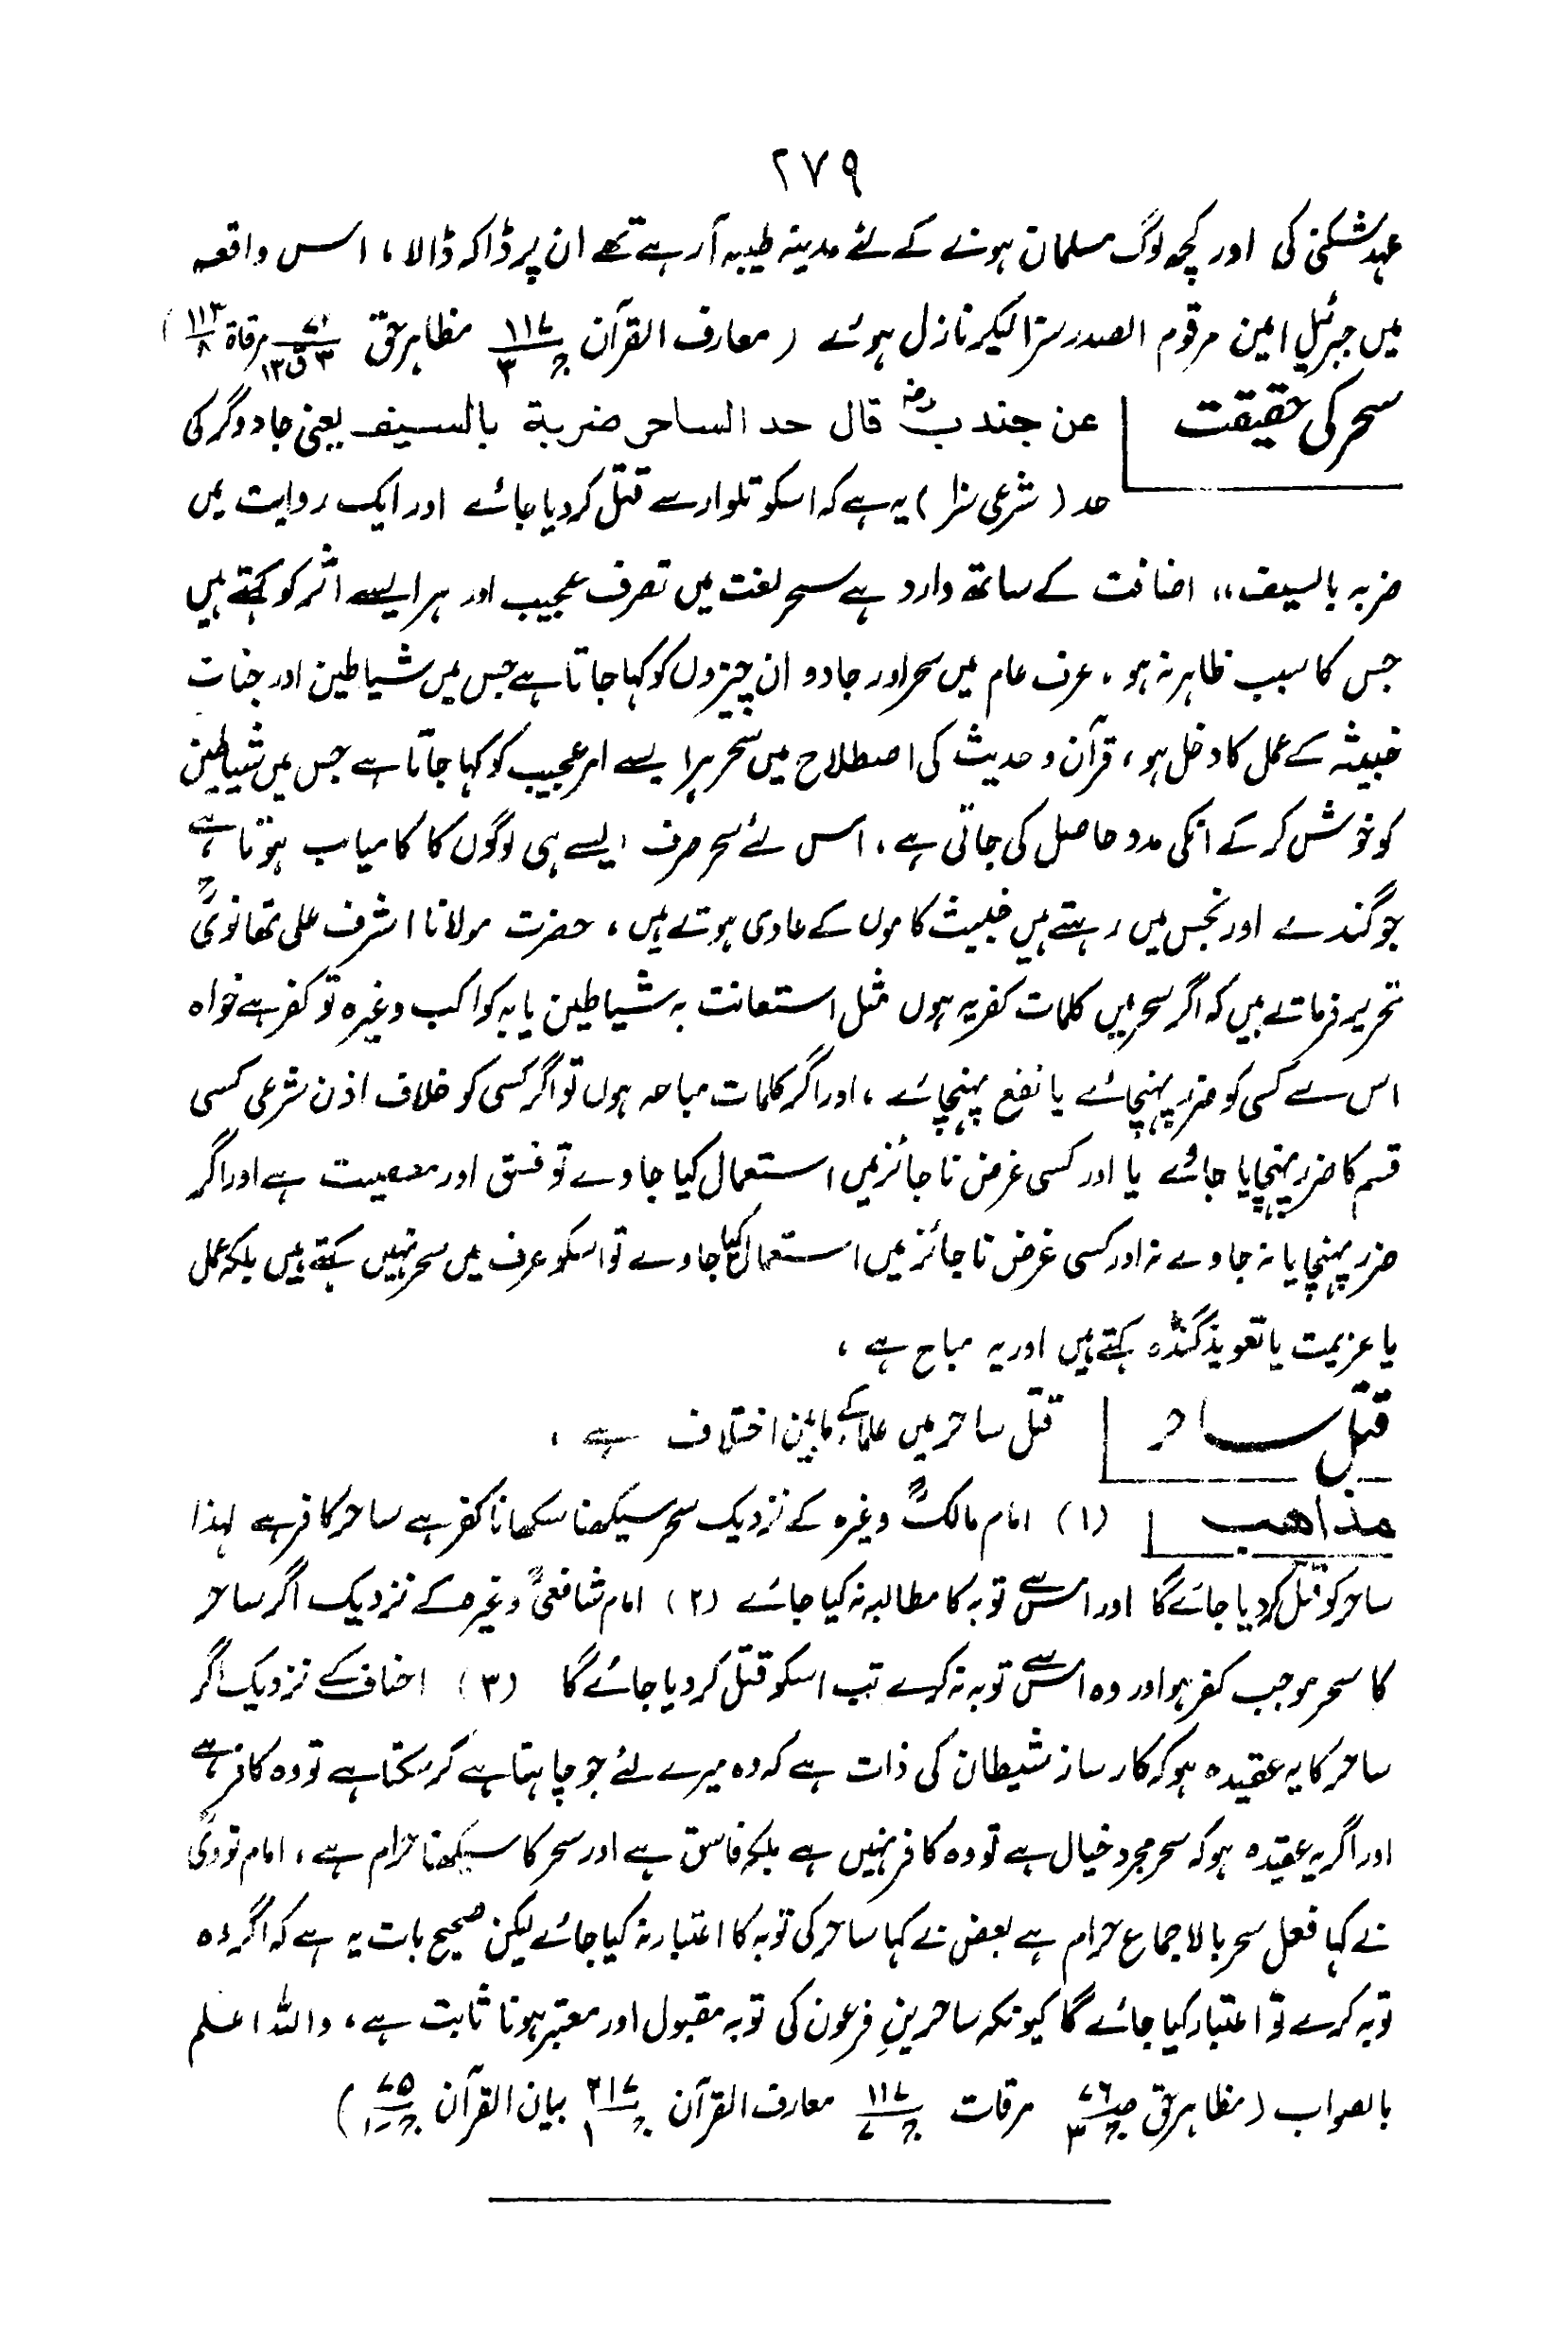 ۲۷۹
عہد شکنی کی اور کچھ لوگ مسلمان ہونے کے لئے مدینہ طیبہ آرہے تھے ان پر ڈاکہ ڈالا، اس واقعہ
میں جبرئیل امین مرقوم الصدر سزا لیکر نازل ہوئے (معارف القرآن ۱۱۷/ج۳ مظاہر حق مرقاۃ ۱۱۳/۸)
سحر کی حقیقت عن جندبؓ قال حد الساحر ضربة بالسيف یعنی جادوگر کی
حد (شرعی سزا) یہ ہے کہ اسکو تلوار سے قتل کردیا جائے اور ایک روایت میں
ضربہ بالسیف،، اضافت کے ساتھ وارد ہے سحر لغت میں تصرف عجیب اور ہر ایسے اثر کو کہتے ہیں
جس کا سبب ظاہر نہ ہو، عرف عام میں سحر اور جادو ان چیزوں کو کہا جاتا ہے جس میں شیاطین اور جنات
خبیثہ کے عمل کا دخل ہو، قرآن و حدیث کی اصطلاح میں سحر ہر ایسے امر عجیب کو کہا جاتا ہے جس میں شیاطین
کو خوش کرکے انکی مدد حاصل کی جاتی ہے، اس لئے سحر صرف ایسے ہی لوگوں کا کامیاب ہوتا ہے
جو گندے اور نجس میں رہتے ہیں خبیث کاموں کے عادی ہوتے ہیں، حضرت مولانا اشرف علی تھانویؒ
تحریر فرماتے ہیں کہ اگر سحر میں کلمات کفریہ ہوں مثل استعانت بہ شیاطین یا بہ کواکب وغیرہ تو کفر ہے خواہ
اس سے کسی کو ضرر پہنچائے یا نفع پہنچائے، اور اگر کلمات مباحہ ہوں تو اگر کسی کو خلاف اذن شرعی کسی
قسم کا ضرر پہنچایا جائے یا اور کسی غرض ناجائز میں استعمال کیا جاوے تو فسق اور معصیت ہے اور اگر
ضرر پہنچایا نہ جاوے نہ اور کسی غرض ناجائز میں استعمال کیا جاوے تو اسکو عرف میں سحر نہیں کہتے ہیں بلکہ عمل
یا عزیمت یا تعویذ گنڈہ کہتے ہیں اور یہ مباح ہے،
قتل ساحر قتل ساحر میں علماء کے مابین اختلاف ہے،
مذاهب (۱) امام مالکؒ وغیرہ کے نزدیک سحر سیکھنا سکھانا کفر ہے ساحر کافر ہے لہذا
ساحر کو قتل کردیا جائے گا اور اس سے توبہ کا مطالبہ نہ کیا جائے (۲) امام شافعیؒ وغیرہ کے نزدیک اگر ساحر
کا سحر موجب کفر ہو اور وہ اس سے توبہ نہ کرے تب اسکو قتل کردیا جائے گا (۳) احناف کے نزدیک اگر
ساحر کا یہ عقیدہ ہو کہ کارساز شیطان کی ذات ہے کہ وہ میرے لئے جو چاہتا ہے کرسکتا ہے تو وہ کافر ہے
اور اگر یہ عقیدہ ہو کہ سحر مجرد خیال ہے تو وہ کافر نہیں ہے بلکہ فاسق ہے اور سحر کا سیکھنا حرام ہے، امام نوویؒ
نے کہا فعل سحر بالاجماع حرام ہے بعض نے کہا ساحر کی توبہ کا اعتبار نہ کیا جائے لیکن صحیح بات یہ ہے کہ اگر وہ
توبہ کرے تو اعتبار کیا جائے گا کیونکہ ساحرینِ فرعون کی توبہ مقبول اور معتبر ہونا ثابت ہے، واللہ اعلم
بالصواب (مظاہر حق مرقات ۱۱۷/ج۷ معارف القرآن بیان القرآن)